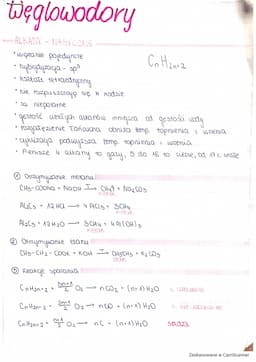 Węglowodory
ALKANY - NASYCONE
• wiązanie pojedyncze
CnH2n+2
• hybrydyzacja - sp³
• kształt tetraedryczny
• nie rozpuszczają się w wodzie
• są niepolarne
• gęstość ciekłych alkanów mniejsza od gęstości wody
• rozgałęzienie łańcucha obniża temp. topnienia i wrzenia
• cyklizacja podwyższa temp. topnienia i wrzenia
• Pierwsze 4 alkany to gazy, 5 do 16 to ciecze, od 17 c. stałe
① Otrzymywanie metanu
CH3-COONa + NaOH →T CH4↑ + Na2CO3
Al4C3 + 12HCl → 4AlCl3 + 3CH4
METAN
Al4C3 + 12H2O → 3CH4 + 4Al(OH)3
METAN
② Otrzymywanie etanu
CH3-CH2-COOK + KOH →T CH3CH3 + K2CO3
③ Reakcje spalania
CnH2n+2 + 3n+1/2 O2 → nCO2 + (n+1)H2O
CnH2n+2 + 2n+1/2 O2 → nCO + (n+1)H2O
CnH2n+2 + n+1/2 O2 → nC + (n+1)H2O sadza
Zeskanowane w CamScanner